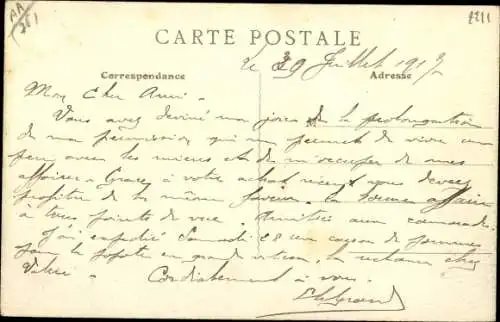 AA
CARTE POSTALE
le 30 Juillet 1917
Correspondance
Adresse
Mon Cher Ami -
Vous avez deviné ma joie de la prolongation
de ma permission qui me permet de vivre un
peu avec les miens et de m'occuper de mes
affaires - Grace à votre achat récent vous devez
profiter de la même faveur. La bonne affaire
à tous points de vue. Amitiés aux camarades.
J'ai expédié Samedi 28 un de pommes
pour la popote en grande vitesse, le chez
Cordialement à vous.
Legrand